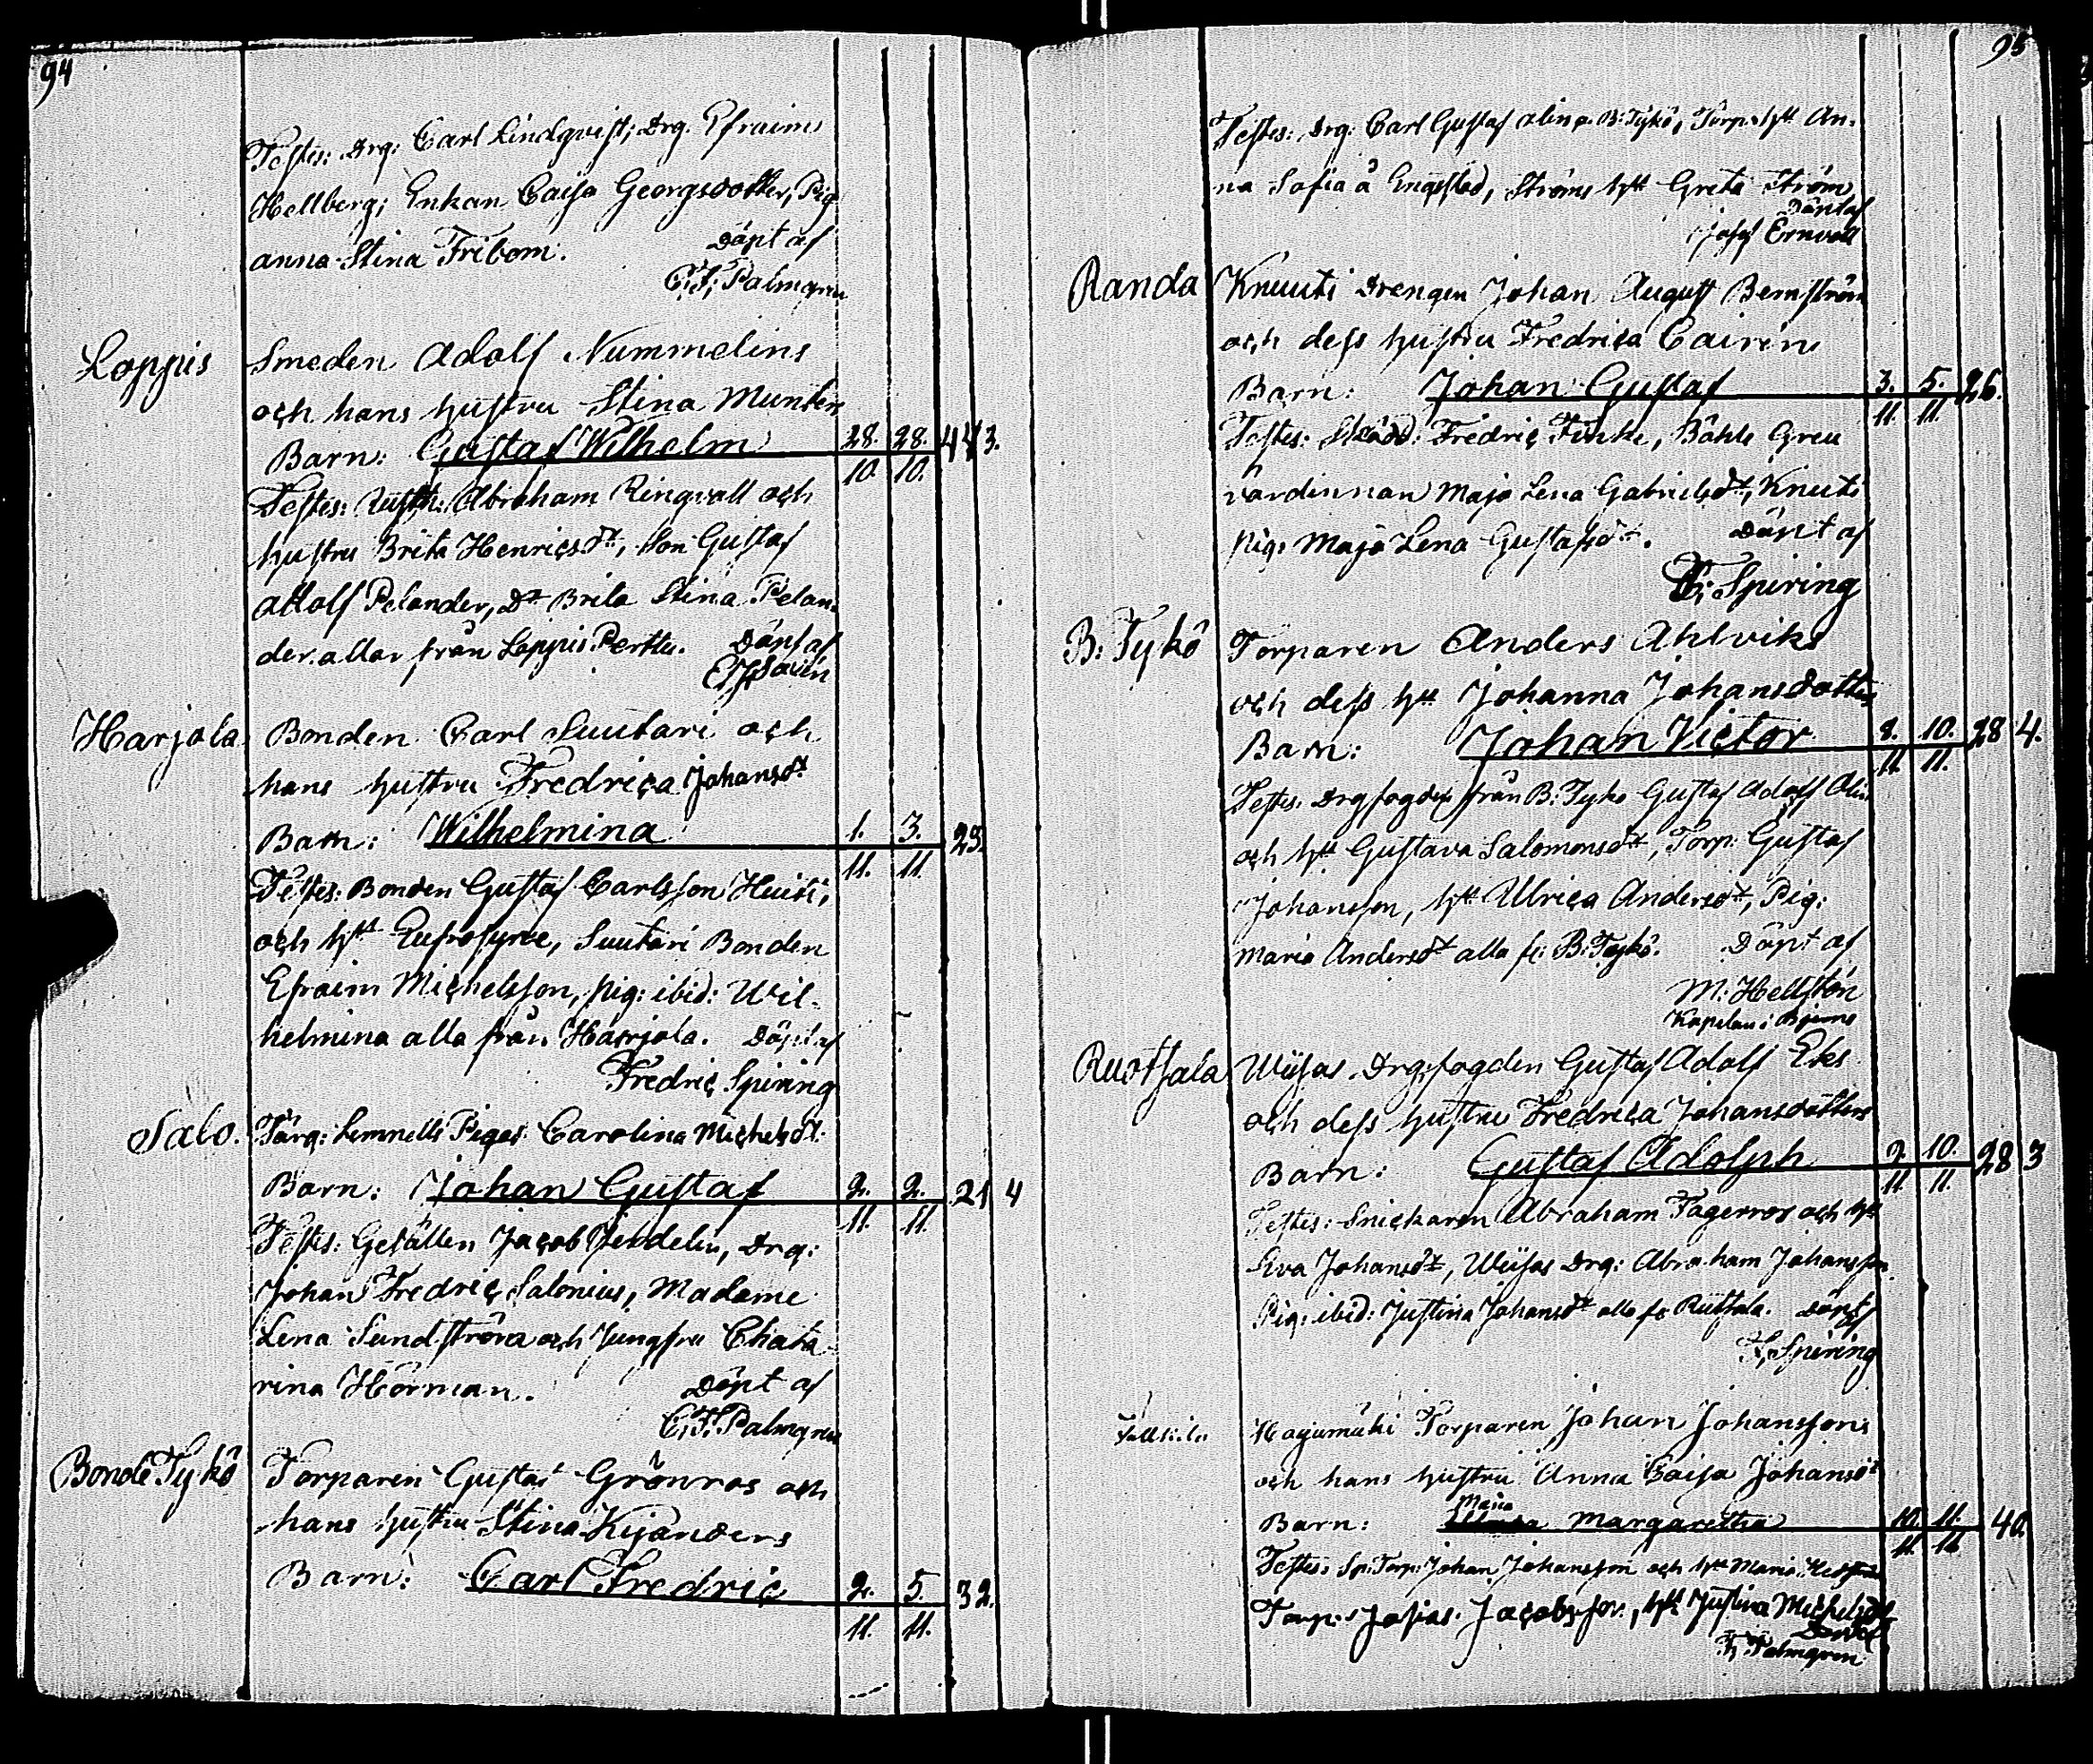 94
Testes: Drg: Carl Lindqvist; Drg. Efraim
Hellberg; Enkan Caisa Georgsdotter, Pig
anna Stina Fribom. Döpt af
C. F. Palmgren
Loppis Smeden Adolf Nummelins
och hans hustru Stina Munters
Barn: Gustaf Wilhelm 28. 28. 44 3.
10. 10.
Testes: Rusth: Abraham Ringvall och
hustru Brita Henricsdr, Son Gustaf
Adolf Pelander, Dr Brita Stina Pelan-
der. allar från Loppis Perttu. Döpt af
Harjola Bonden Carl Suutari och
hans hustru Fredrica Johansdr
Barn: Wilhelmina 1. 3. 23.
11. 11.
Testes: Bonden Gustaf Carlsson Huiti,
och hst Eufrosyne, Suutari Bonden
Efraim Michelsson, pig: ibid: Wil-
helmina alla från Harjola. Döpt af
Fredric Spiring
Salo. Färg: Lemnells Pigas Carolina Michelsdr:
Barn: Johan Gustaf 2. 2. 21 4
11. 11.
Testes: Gesällen Jacob Vendelin, Drg:
Johan Fredric Salonius, Madame
Lena Sundström och Jungfru Chata-
rina Hörman. Döpt af
C. F. Palmgren
Bonde Tykö Torparen Gustaf Grönros och
hans hustru Stina Kijanders
Barn: Carl Fredric 2. 5. 32.
11. 11.
95
Testes: Drg: Carl Gustaf Alin p. B: Tykö, Torp. hst An-
na Sofia å Engestad, Ströms hst Greta Ström
Döpt af
Josef Ernvall
Randa Knuuti Drengen Johan August Bernström
och dess hustru Fredrica Cairin
Barn: Johan Gustaf 3. 5. 26.
11. 11.
Testes: Fredric Finke, Böhle Greu
värdinnan Maja Lena Gabrielsdr, Knuuti
pig: Maja Lena Gustafsdr. Döpt af
F. Spiring
B: Tykö Torparen Anders Ahlviks
och dess hst Johanna Johansdotters
Barn: Johan Victor 8. 10. 28 4.
11. 11.
Testes: Drgfogden från B: Tykö Gustaf Adolf Alin
och hst Gustava Salomonsdr, Torp: Gustaf
Johansson, hst Ulrica Andersdr, Pig:
Maria Andersdr alla fr: B: Tykö. Döpt af
M: Hellstön
Kapelan i Bjerno
Ruotsala Wiisas Drgfogden Gustaf Adolf Eks
och dess hustru Fredrica Johansdotters
Barn: Gustaf Adolph 9. 10. 28 3
11. 11.
Testes: Snickaren Abraham Fagerros och hst
Eva Johansdr, Wiisas Drg: Abraham Johansson
Pig: ibid: Justina Johansdr alla fr Ruotsala. Döpt af
F. Spiring
Hajumäki Torparen Johan Johanssons
och hans hustru Anna Caisa Johansdr
Maria
Barn: Margaretha 10. 11. 40.
11. 11.
Testes: Sp: Torp: Johan Johansson och hst Maria
Torp: Josias Jacobsson, hst Justina Michelsdr
Palmgren